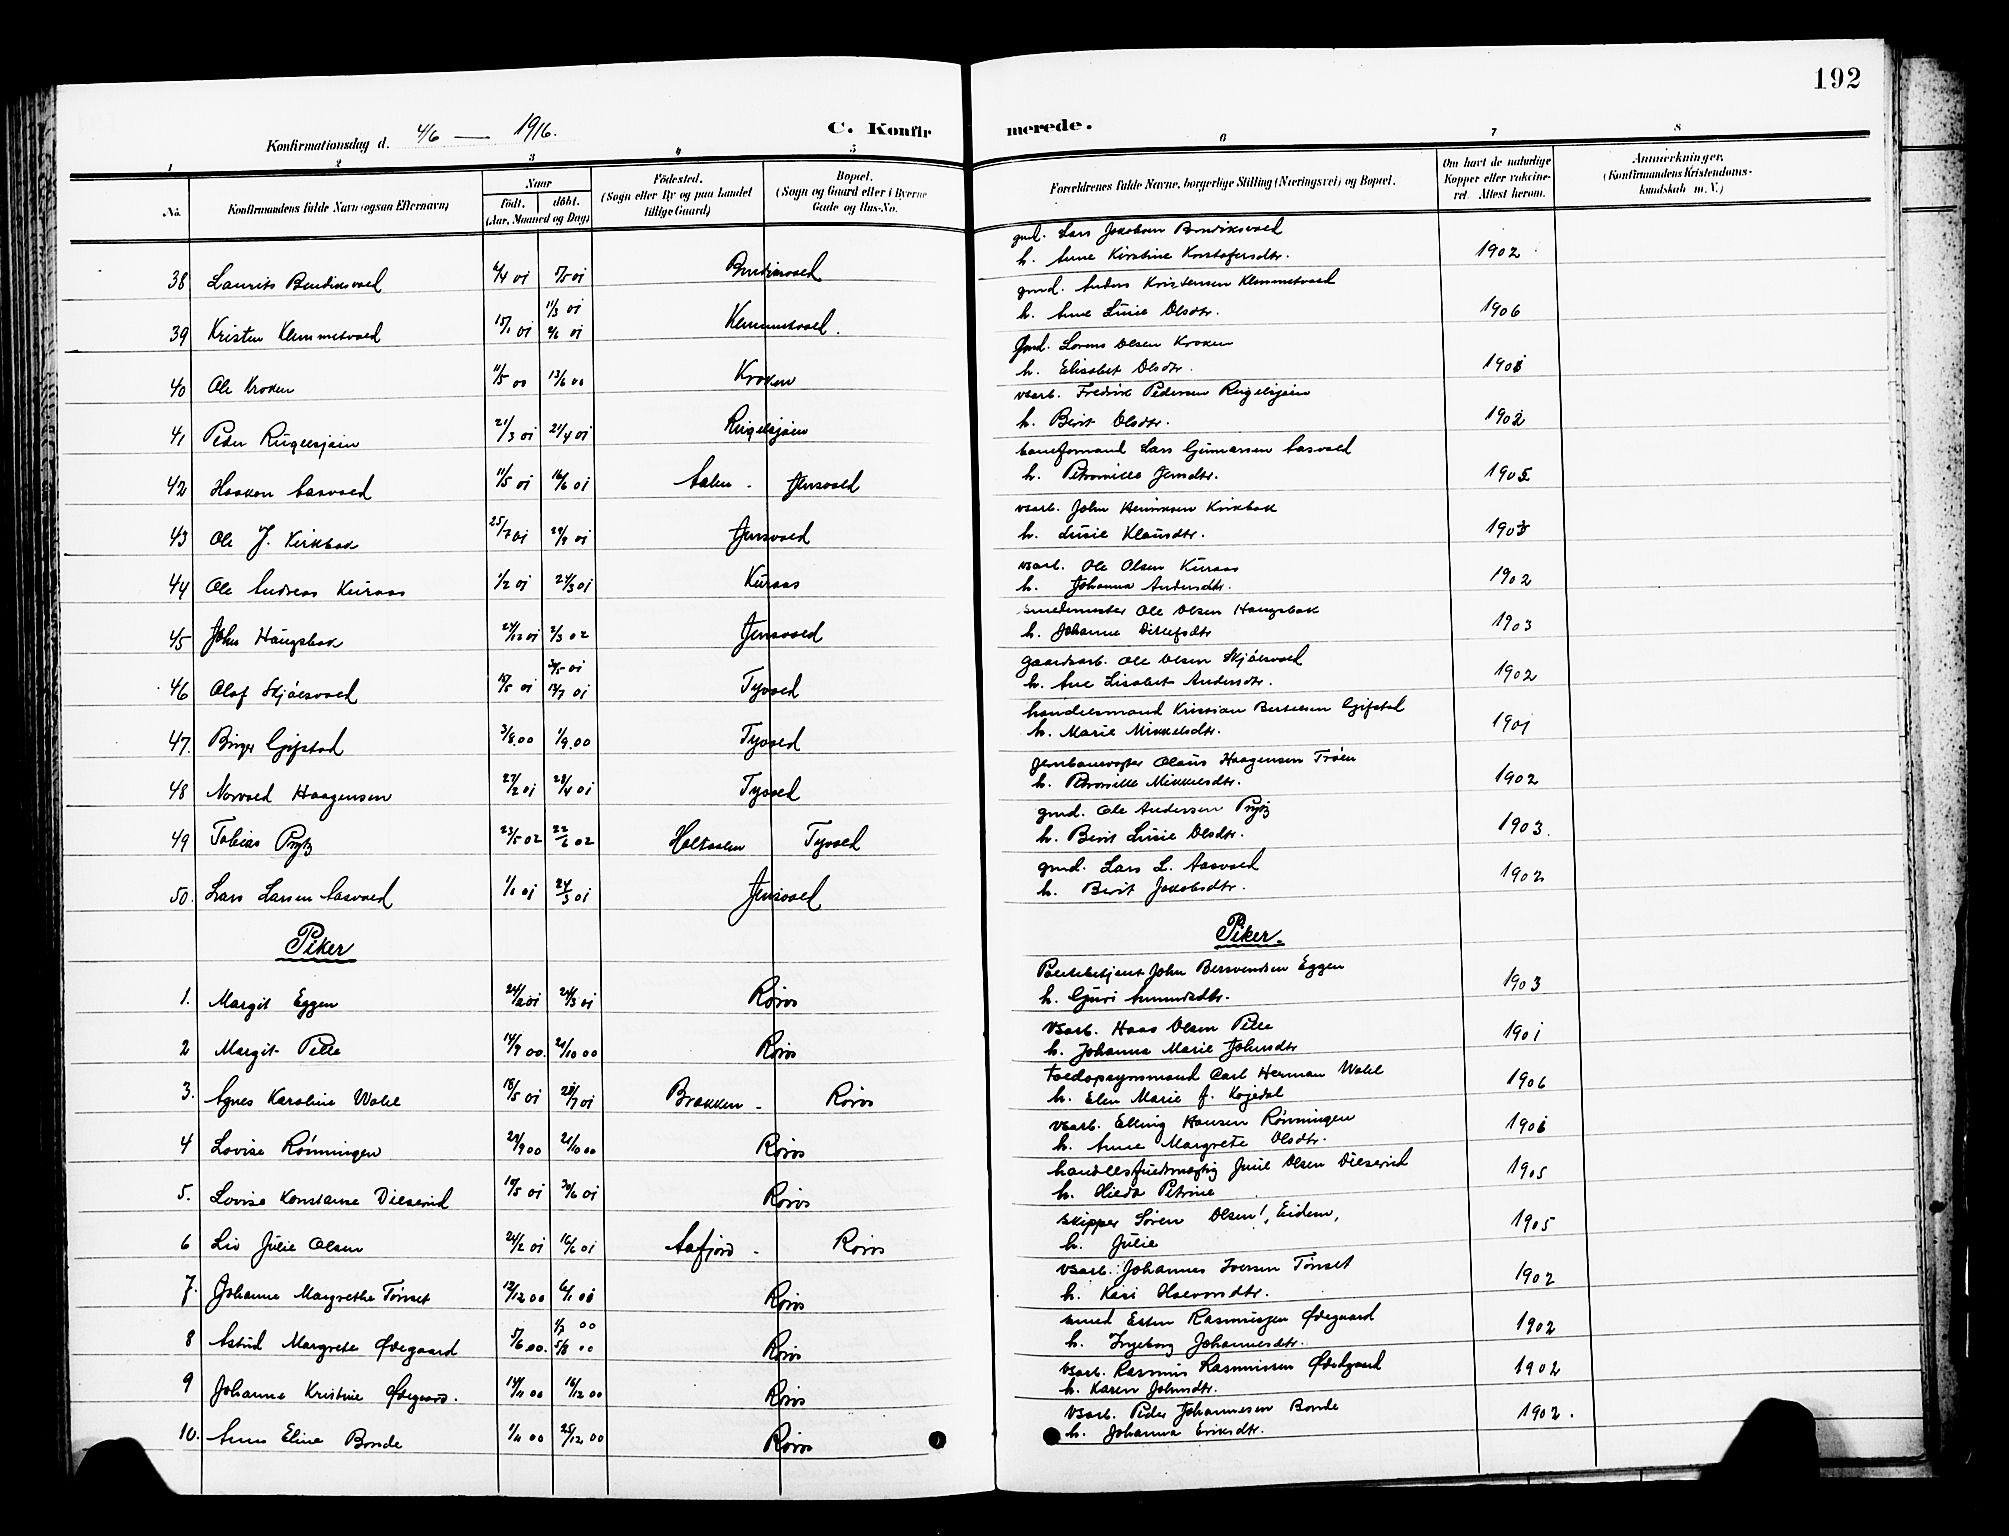 192
Konfirmationsdag d. 4/6 — 1916.
C. Konfirmerede.
1 2 3 4 5 6 7 8
No. Konfirmandens fulde Navn (ogsaa Efternavn) Naar født. døbt. (Aar, Maaned og Dag) Födested. (Sogn eller By og paa Landet tillige Gaard) Bopæl. (Sogn og Gaard eller i Byerne Gade og Hus-No. Forældrenes fulde Navne, borgerlige Stilling (Næringsvei) og Bopæl. Om havt de naturlige Kopper eller vakcineret. Attest herom. Anmærkninger. (Konfirmandens Kristendomskundskab m. V.)
gmd. Lars Jakobsen Bendiksvold
38 Laurits Bendiksvold 6/4 01 5/5 01 Bendiksvold h. Anne Kirstine Kristofersdtr. 1902
gmd. Anders Kristensen Klemmetvold
11/3 01
39 Kristen Klemmetvold 15/1 01 2/6 01 Klemmetvold. h. Anne Lusie Olsdtr. 1906
gmd. Lorens Olsen Kroken
40 Ole Kroken 11/5 00 13/6 00 Kroken h. Elisabet Olsdtr.
vsarb. Fredrik Pedersen Rugelsjøin
41 Peder Rugelsjøin 21/3 01 21/4 01 Rugelsjøen h. Berit Olsdtr. 1902
baneformand Lars Gunnarsen Aasvold
42 Haakon Aasvold 11/5 01 16/6 01 Aalen - Jensvold h. Petronille Jensdtr. 1905
vsarb. John Henriksen Kirkbak
43 Ole J. Kirkbak 25/7 01 29/9 01 Jensvold h. Lusie Klausdtr. 1903
vsarb. Ole Olsen Kuraas
44 Ole Andreas Kuraas 1/2 01 24/3 01 Kuraas h. Johanna Andersdtr. 1902
smedemester Ole Olsen Haugsbak
45 John Haugsbak 27/12 01 2/3 02 Jensvold h. Johanne Ditlefsdtr 1903
gaardsarb. Ole Olsen Skjølsvold
46 Olaf Skjølsvold 17/5 01 Tyvold h. Ane Lisabet Andersdtr. 1902
handelsmand Kristian Bertelsen Gjifstad
47. Birger Gjifstad 3/8.00 1/9.00 Tyvold h. Marie Mikkelsdtr. 1901
jernbanevogter Olaus Haagensen Trøen
48 Norvald Haagensen 27/2 01 28/4 01 Tyvold h. Petronille Mikkelsdtr. 1902
gmd. Ole Andersen Prytz
49 Tobias Prytz 23/5 02 22/6 02 Holtaalen Tyvold h. Berit Lusie Olsdtr. 1903.
gmd. Lars L. Aasvold
50. Lars Larsen Aasvold 1/1 01 24/3 01 Jensvold h. Berit Jakobsdtr. 1902
Piker Piker.
Politibetjent John Bersvendsen Eggen
1. Margit Eggen 24/3 01 Røros h. Guri Amundsdtr. 1903
vsarb. Haas Olsen Pelle
2 Margit Pelle 14/9 00. 21/10 00 Røros h. Johanna Marie Johnsdtr 1901
toldopsynsmand Carl Herman Wold
3. Agnes Karoline Wold 18/5 01 28/7 01 Brekken - Røros h. Elen Marie f. Køjedal 1906
vsarb. Elling Hansen Rønningen
4 Lovise Rønningen 29/9 00 21/10 00 Røros h. Anne Margrete Olsdtr. 1901
handelsfuldmægtig Juul Olsen Dilserud
5. Lovise Konstanse Dilserud 10/5 01 30/6 01 Røros h. Hilda Petrine 1905
skipper Søren Olsen!, Eidem,
6 Liv Julie Olsen 24/2 01 16/6 01 Aafjord - Røros h. Julie 1905
vsarb. Johannes Iversen Tønset
7. Johanne Margrethe Tønset 12/12 00 6/1 01 Røros h. Kari Halvorsdtr. 1902
smed Esten Rasmussen Ødegaard
1/7 00
8 Astrid Margrete Ødegaard 5/6 00. 5/8 00 Røros h. Ingeborg Johannesdtr. 1902
vsarb. Rasmus Rasmussen Ødegaard
9 Johanna Kristine Ødegaard. 14/11 00 16/12 00 Røros h. Karen Johnsdtr. 1902
vsarb. Peder Johannesen Borde
10. Anne Eline Borde 1/11 00 25/12 00 Røros h. Johanna Eriksdtr. 1902.